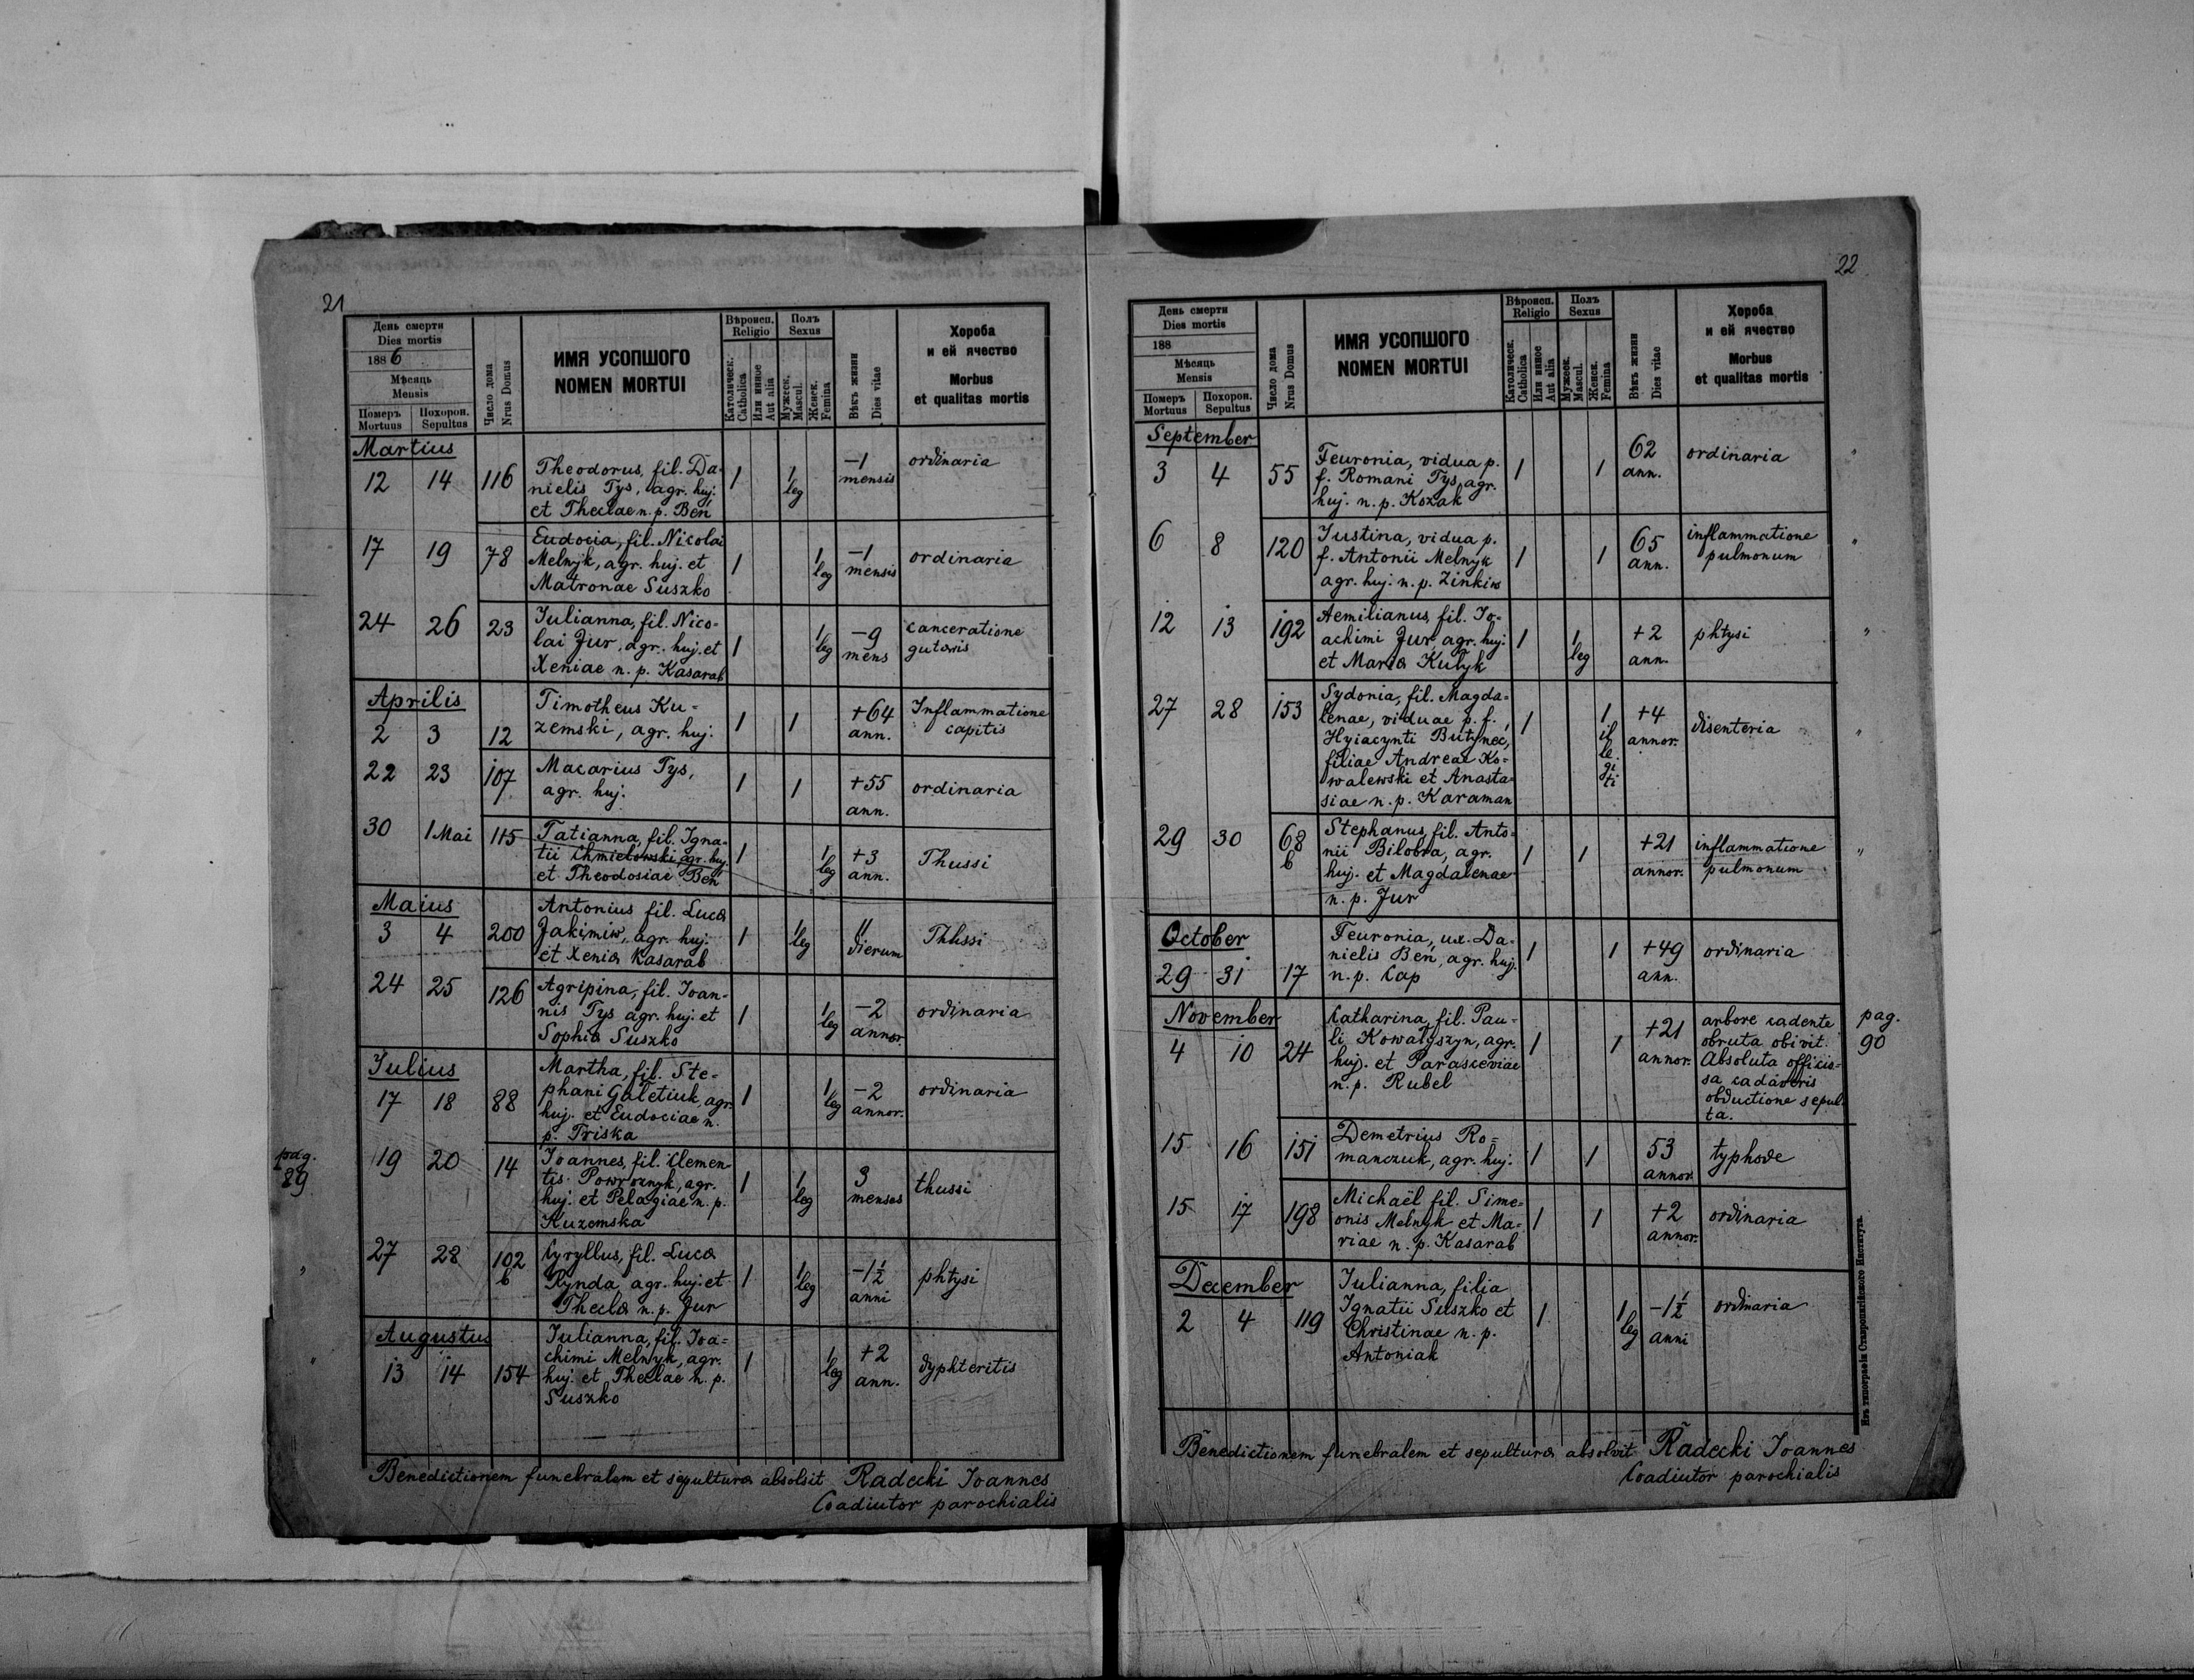 21
День смерти
Dies mortis
1886
Мѣсяць
Mensis
Померъ Mortuus
Похорон. Sepultus
Число дома
Nrus Domus
ИМЯ УСОПШОГО
NOMEN MORTUI
Вѣроисп.
Religio
Католическ.
Catholica
Или инное
Aut alia
Полъ
Sexus
Мужеск.
Mascul.
Женск.
Femina
Вѣкъ жизни
Dies vitae
Хороба
и ей ячество
Morbus
et qualitas mortis
Martius
12 14 116 Theodorus, fil. Da- 1 1 leg -1 mensis ordinaria
nielis Tys, agr. huj.
et Theclae n. p. Beń
17 19 78 Eudocia, fil. Nicolai 1 1 leg -1 mensis ordinaria
Melnyk, agr. huj. et
Matronae Suszko
24 26 23 Iulianna, fil. Nico- 1 1 leg -9 mens canceratione
lai Jur, agr. huj. et gutoris
Xeniae n. p. Kasarab
Aprilis
2 3 12 Timotheus Ku- 1 1 +64 ann. Inflammatione
zemski, agr. huj. capitis
22 23 107 Macarius Tys, 1 1 +55 ann. ordinaria
agr. huj.
30 1 Mai 115 Tatianna, fil. Igna- 1 1 leg +3 ann. Thussi
tii Chmielowski, agr. huj.
et Theodosiae Beń
Maius
3 4 200 Antonius fil. Luca 1 1 leg 11 dierum Thussi
Jakimiw, agr. huj.
et Xenia Kasarab
24 25 126 Agripina, fil. Ioan- 1 1 leg -2 annor. ordinaria
nis Tys agr. huj. et
Sophia Suszko
Iulius
17 18 88 Martha, fil. Ste- 1 1 leg -2 annor. ordinaria
phani Galetiuk, agr.
huj. et Eudociae n.
p. Triska
pag.
89
19 20 14 Ioannes, fil. Clemen 1 1 leg 3 menses thussi
tis Powroznyk, agr.
huj. et Pelagiae n. p.
Kuzemska
27 28 102 b Cyryllus, fil. Luca 1 1 leg -1½ anni phtysi
Rynda agr. huj. et
Thecla n. p. Jur
"
Augustus
13 14 154 Iulianna, fil. Ioa- 1 1 leg +2 ann. dyphteritis
chimi Melnyk, agr.
huj. et Theclae n. p.
Suszko
"
Benedictionem funebralem et sepultura absolsit Radecki Ioannes
Coadiutor parochialis
22
День смерти
Dies mortis
188
Мѣсяць
Mensis
Померъ Mortuus
Похорон. Sepultus
Число дома
Nrus Domus
ИМЯ УСОПШОГО
NOMEN MORTUI
Вѣроисп.
Religio
Католическ.
Catholica
Или инное
Aut alia
Полъ
Sexus
Мужеск.
Mascul.
Женск.
Femina
Вѣкъ жизни
Dies vitae
Хороба
и ей ячество
Morbus
et qualitas mortis
September
3 4 55 Feuronia, vidua p. 1 1 62 ann. ordinaria "
f. Romani Tys, agr.
huj. n. p. Kozak
6 8 120 Iustina, vidua p. 1 1 65 ann. inflammatione "
f. Antonii Melnyk pulmonum
agr. huj. n. p. Zinkiw
12 13 192 Aemilianus, fil. Io- 1 1 leg +2 ann. phtysi "
achimi Jur, agr. huj.
et Maria Kulyk
27 28 153 Sydonia, fil. Magda- 1 1 il le gi ti +4 annor. disenteria "
lenae, viduae p. f.
Hyiacynti Butynec,
filiae Andreae Ko-
walewski et Anasta-
siae n. p. Karaman
29 30 68 b Stephanus, fil. Anto- 1 1 +21 annor. inflammatione "
nii Bilobra, agr. pulmonum
huj. et Magdalenae
n. p. Jur
October
29 31 17 Feuronia, ux. Da- 1 1 +49 ann. ordinaria
nielis Beń, agr. huj.
n. p. Cap
November
4 10 24 Catharina, fil. Pau- 1 1 +21 annor. arbore cadente pag.
li Kowalyszyn, agr. obruta obivit. 90
huj. et Parasceviae Absoluta officio-
n. p. Rubel sa cadaveris
obductione sepul-
ta.
15 16 151 Demetrius Ro- 1 1 53 annor typhode
manczuk, agr. huj.
15 17 198 Michaël fil. Sime- 1 1 +2 annor. ordinaria
onis Melnyk et Ma-
riae n. p. Kasarab
December
2 4 119 Iulianna, filia 1 1 leg -1½ anni ordinaria
Ignatii Suszko et
Christinae n. p.
Antoniak
Benedictionem funebralem et sepultura absolvit Radecki Ioannes
Coadiutor parochialis
Изъ типографіи Ставропигійского Института.